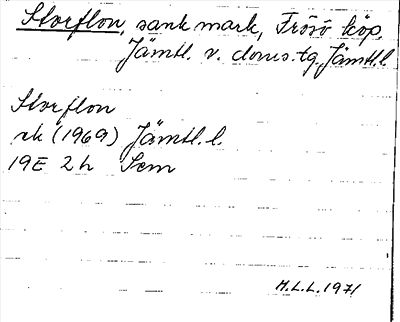 Storflon, sank mark, Frösö köp.
Jämtl. v. doms.tg, Jämtl.l
Storflon
rk (1969) Jämtl. l.
19E 2h Sem
M.L.L. 1971